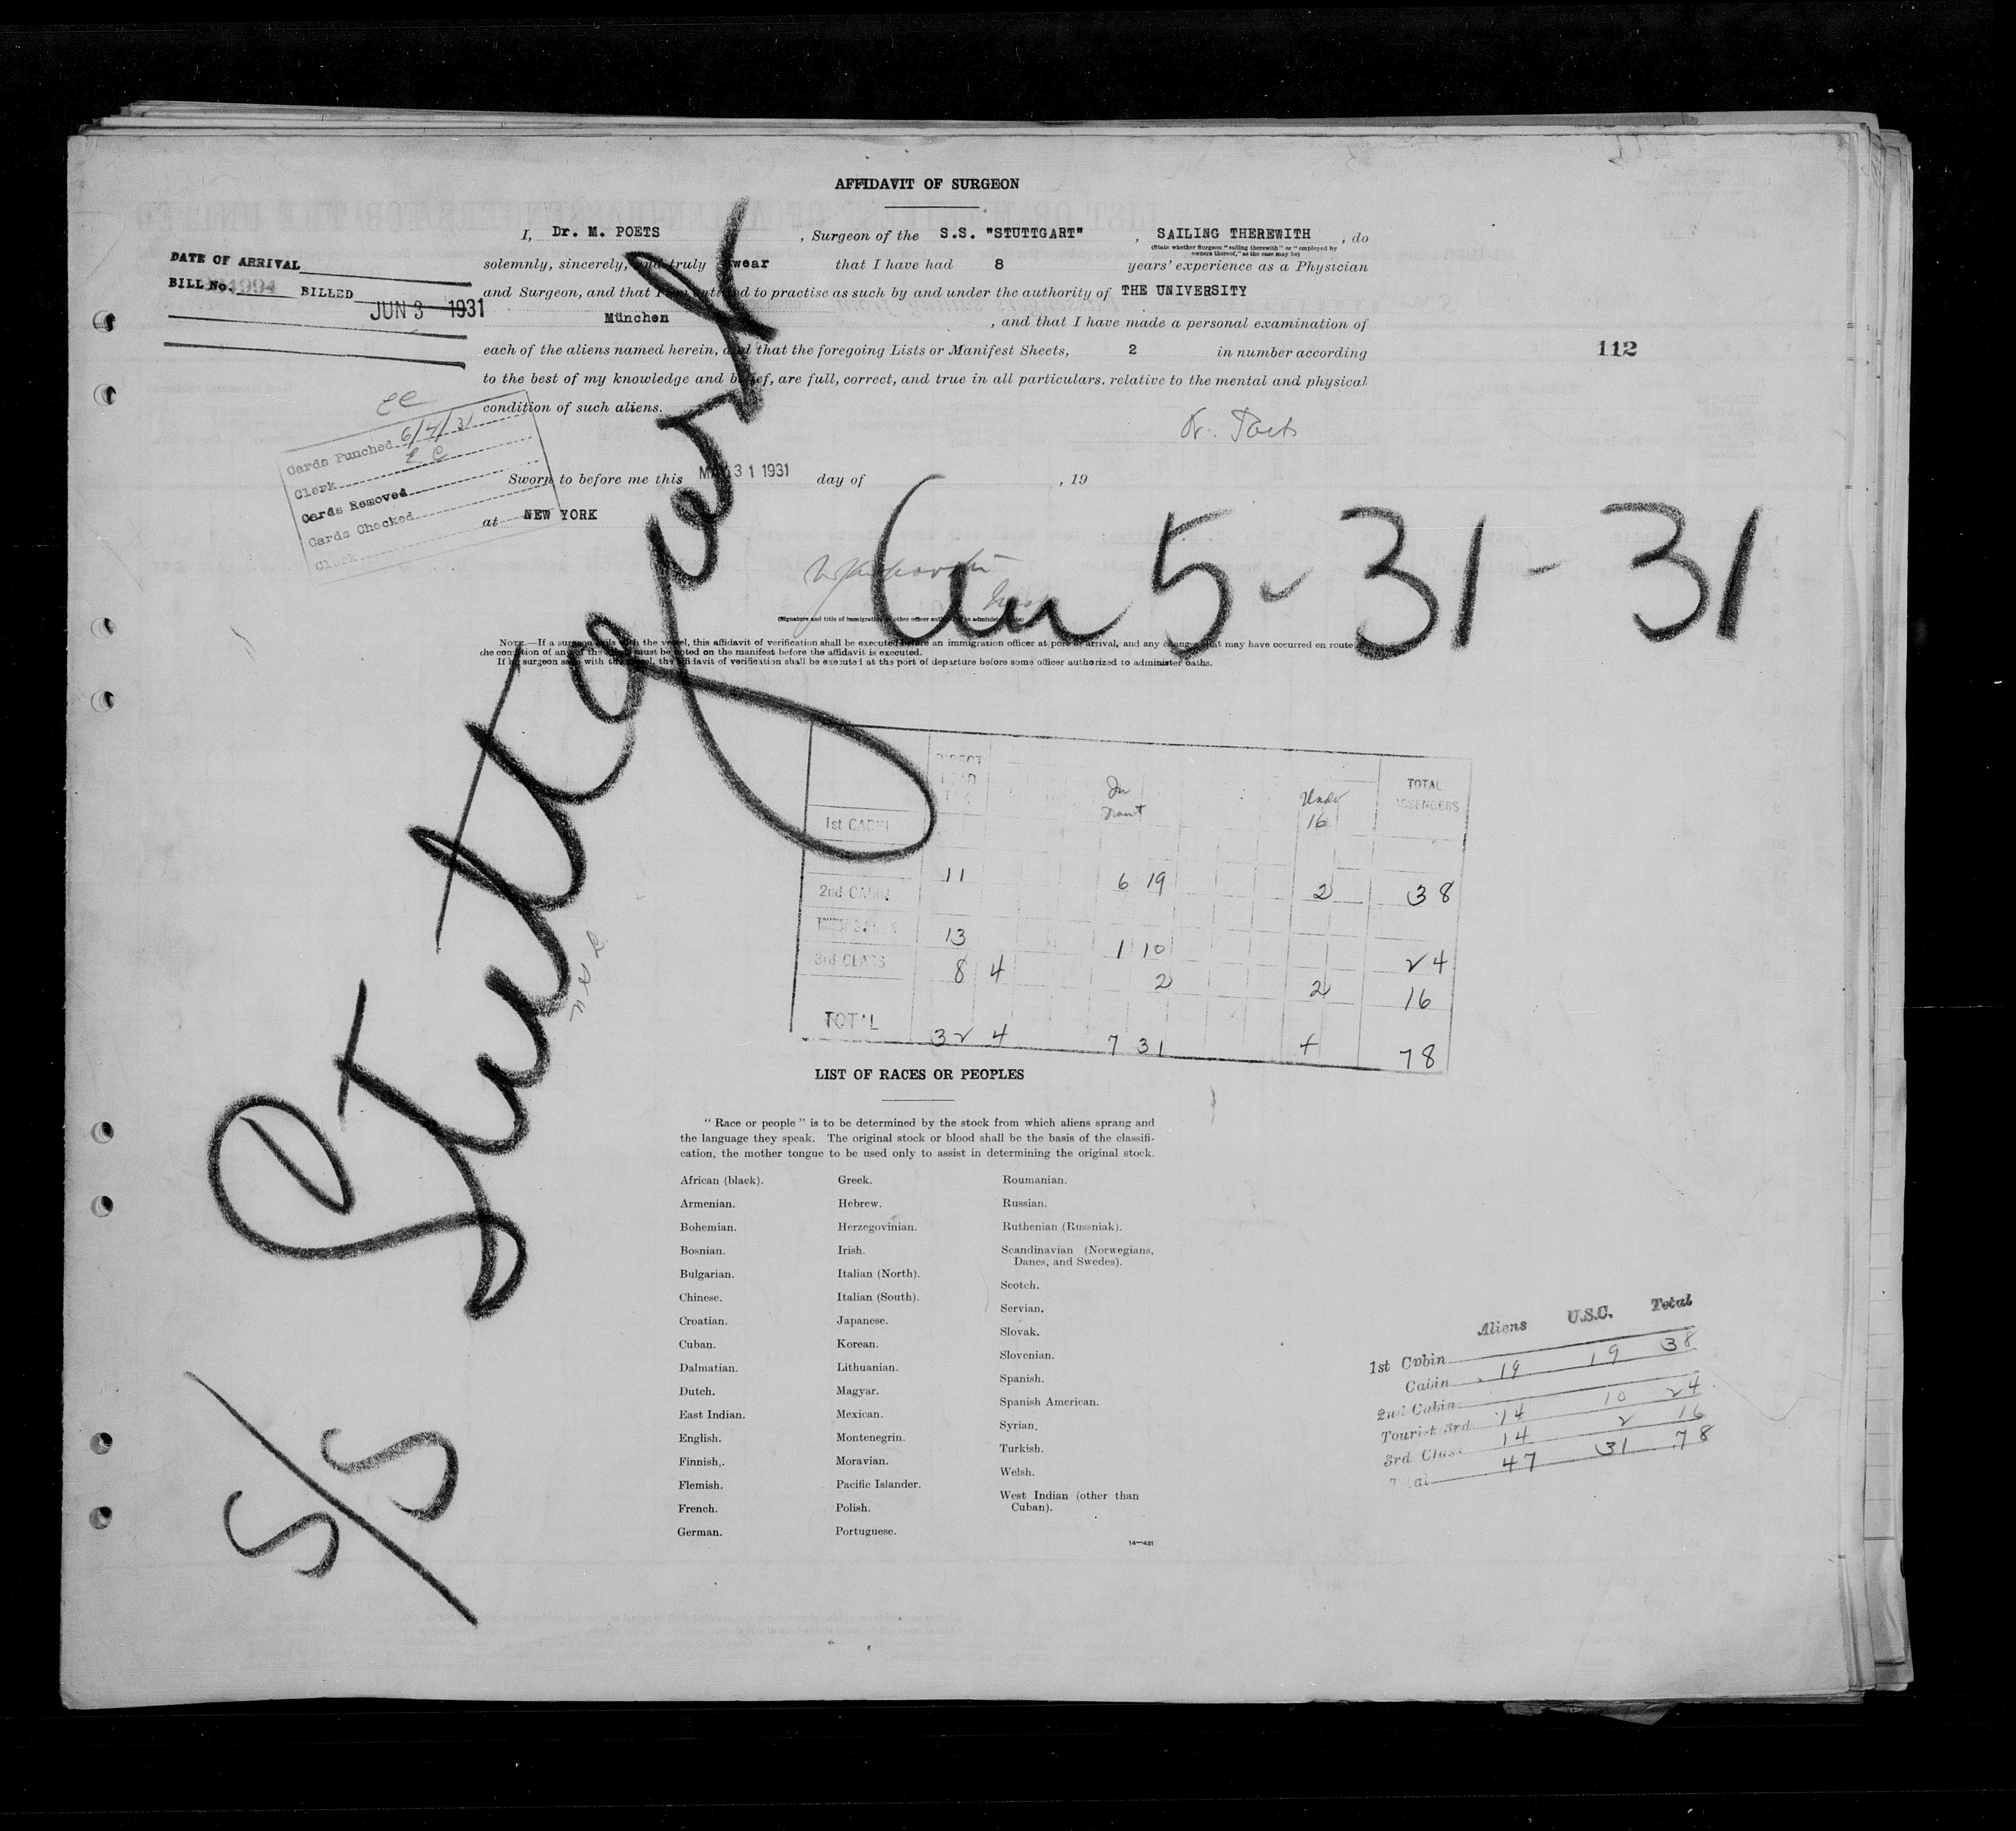 AFFIDAVIT OF SURGEON
I, Dr. M. POETS , Surgeon of the S.S. "STUTTGART" , SAILING THEREWITH , do
(State whether Surgeon "sailing therewith" or "employed by
owners thereof," as the case may be)
solemnly, sincerely, and truly swear that I have had 8 years' experience as a Physician
and Surgeon, and that I am entitled to practise as such by and under the authority of THE UNIVERSITY
München , and that I have made a personal examination of
each of the aliens named herein, and that the foregoing Lists or Manifest Sheets, 2 in number according
to the best of my knowledge and belief, are full, correct, and true in all particulars. relative to the mental and physical
condition of such aliens.
Dr. Poets
DATE OF ARRIVAL
BILL No. BILLED
JUN 3 1931
112
EC
Cards Punched 6/4/31
Clerk E C
Cards Removed
Cards Checked
Clerk
Sworn to before me this MAY 31 1931 day of , 19
at NEW YORK
5-31-31
(Signature and title of immigration or other officer authorized to administer oaths)
NOTE.—If a surgeon sails with the vessel, this affidavit of verification shall be executed before an immigration officer at port of arrival, and any changes that may have occurred en route
the condition of any of the aliens must be noted on the manifest before the affidavit is executed.
If no surgeon sails with the vessel, the affidavit of verification shall be executed at the port of departure before some officer authorized to administer oaths.
S/S Stuttgart
DIRECT In Transit Under 16 TOTAL PASSENGERS
1st CABIN
11 6 19 2 38
2nd CABIN
13 1 10 24
3rd CLASS 8 4 2 2 16
TOTAL 32 4 7 31 4 78
LIST OF RACES OR PEOPLES
"Race or people" is to be determined by the stock from which aliens sprang and
the language they speak. The original stock or blood shall be the basis of the classifi-
cation, the mother tongue to be used only to assist in determining the original stock.
African (black).
Armenian.
Bohemian.
Bosnian.
Bulgarian.
Chinese.
Croatian.
Cuban.
Dalmatian.
Dutch.
East Indian.
English.
Finnish.
Flemish.
French.
German.
Greek.
Hebrew.
Herzegovinian.
Irish.
Italian (North).
Italian (South).
Japanese.
Korean.
Lithuanian.
Magyar.
Mexican.
Montenegrin.
Moravian.
Pacific Islander.
Polish.
Portuguese.
Roumanian.
Russian.
Ruthenian (Russniak).
Scandinavian (Norwegians,
Danes, and Swedes).
Scotch.
Servian.
Slovak.
Slovenian.
Spanish.
Spanish American.
Syrian.
Turkish.
Welsh.
West Indian (other than
Cuban).
14—431
Aliens U.S.C. Total
1st Cabin
Cabin 19 19 38
2nd Cabin
Tourist 3rd 14 10 24
3rd Class 14 2 16
Total 47 31 78